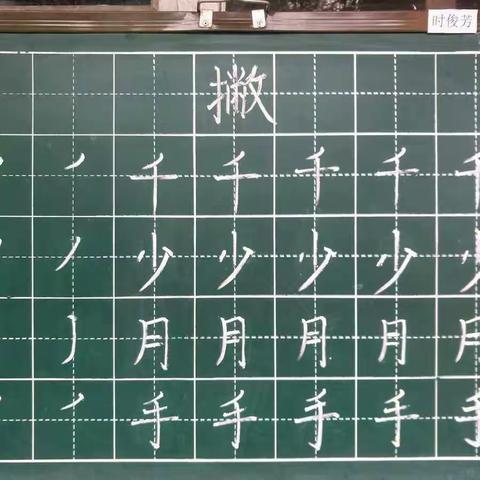 时俊芳
撇
千 千 千 千 千
少 少 少 少 少
月 月 月 月 月
手 手 手 手 手